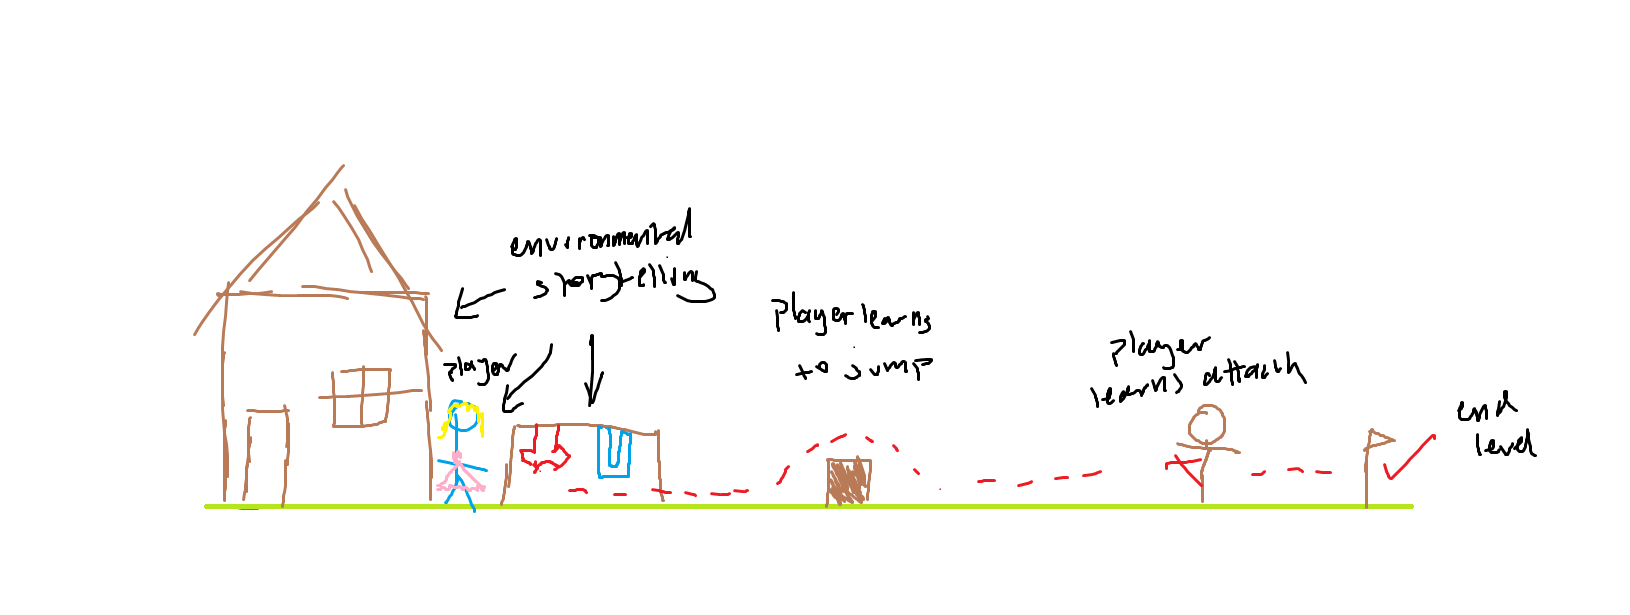 environmental
storytelling
player
player learns
to jump
player
learns attach
end
level